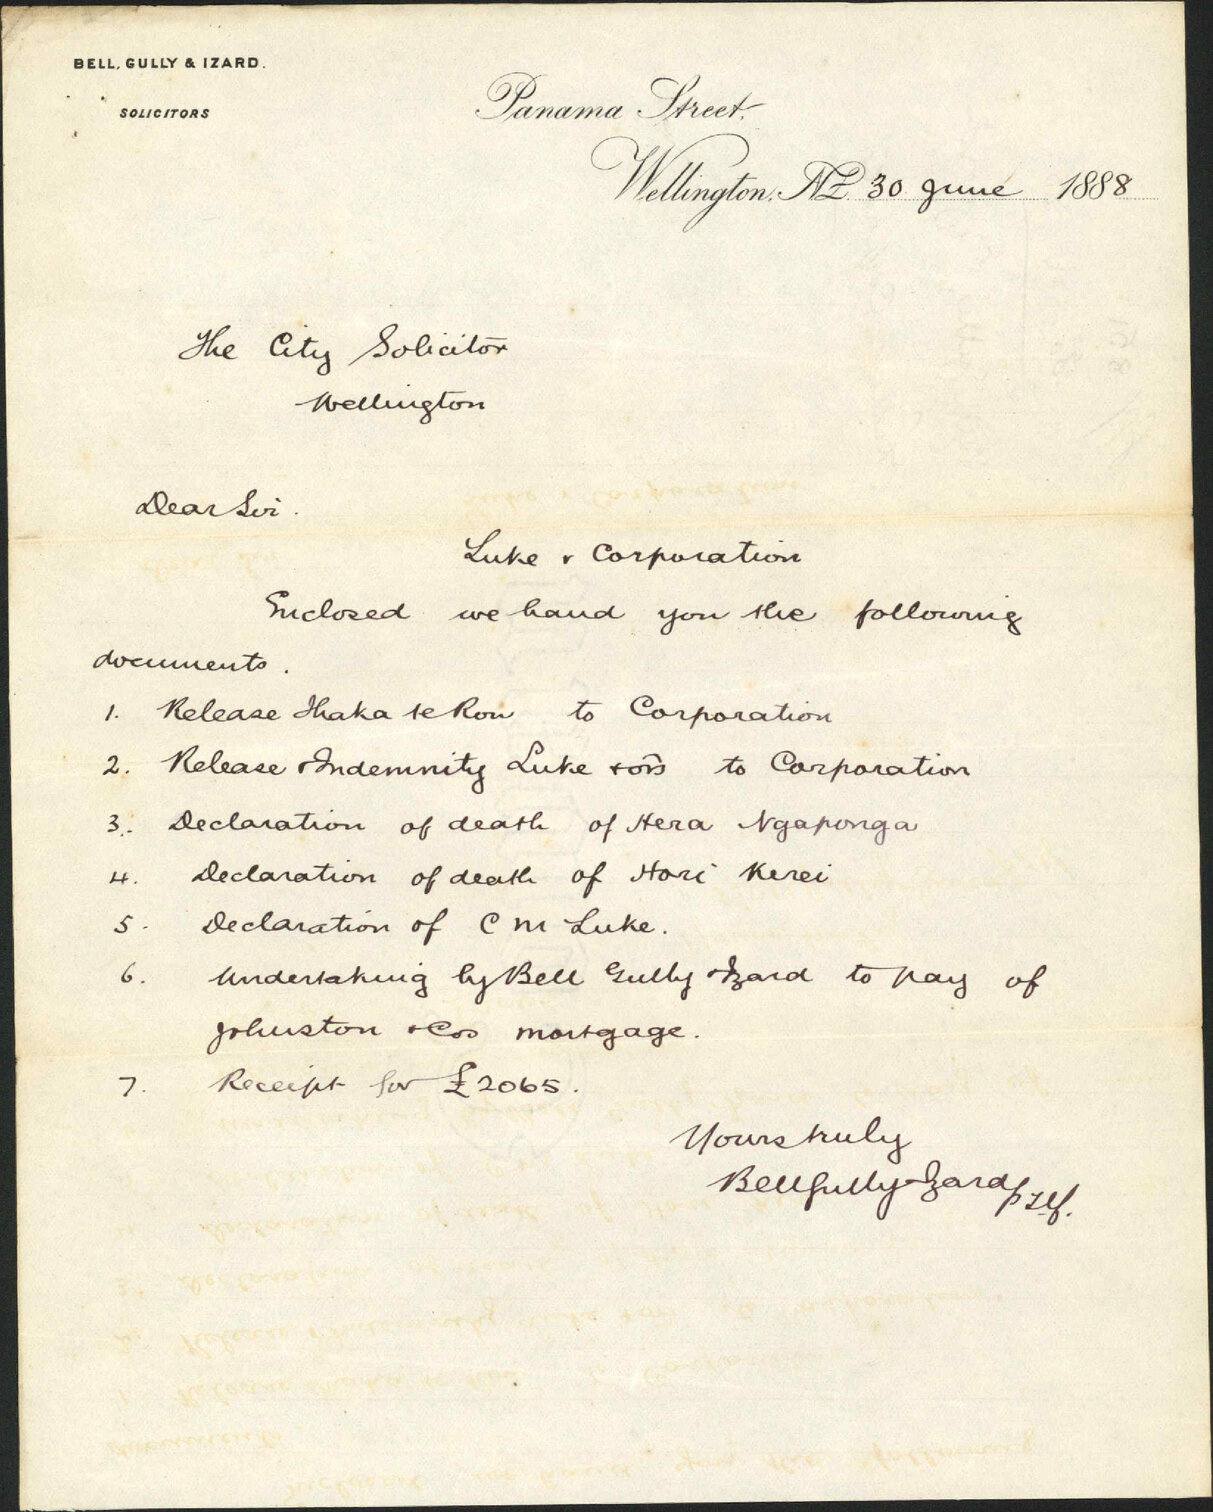 BELL, GULLY & IZARD.
SOLICITORS
Panama Street.
Wellington, N.Z. 30 June 1888
The City Solicitor
Wellington
Dear Sir.
Luke & Corporation
Enclosed we hand you the following
documents.
1. Release Ihaka te Rou to Corporation
2. Release & Indemnity Luke & ors to Corporation
3. Declaration of death of Hera Ngaponga
4. Declaration of death of Hori Kerei
5. Declaration of C M Luke.
6. Undertaking by Bell Gully & Izard to pay of
Johnston & Cos mortgage.
7. Receipt for £2065.
Yours truly
Bell Gully & Izard